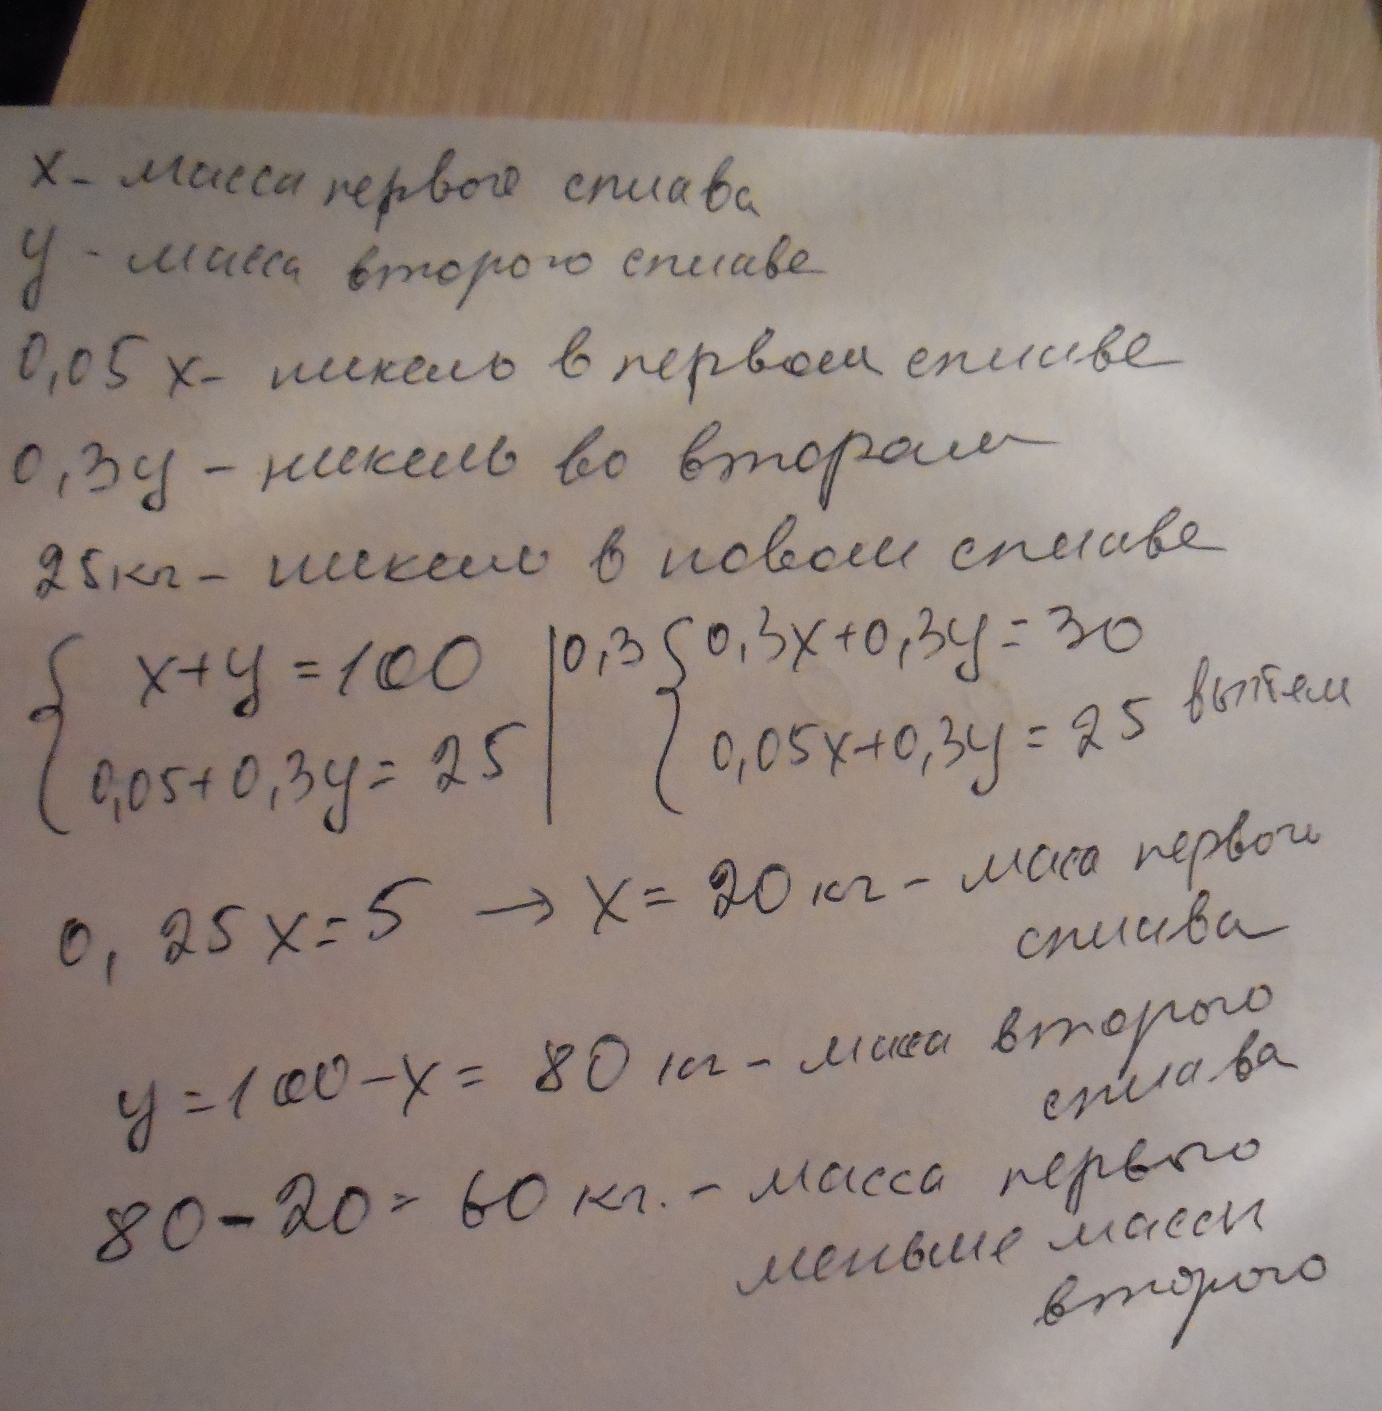 x - масса первого сплава
y - масса второго сплаве
0,05 x - никель в первом сплаве
0,3y - никель во втором
25кг - никель в новом сплаве
{ x+y=100 | 0,3 { 0,3x+0,3y=30
{ 0,05+0,3y=25 | { 0,05x+0,3y=25 вычтем
0,25x=5 → x=20кг - маса первого
сплава
y=100-x=80кг - масса второго
сплава
80-20=60кг. - масса первого
меньше массы
второго